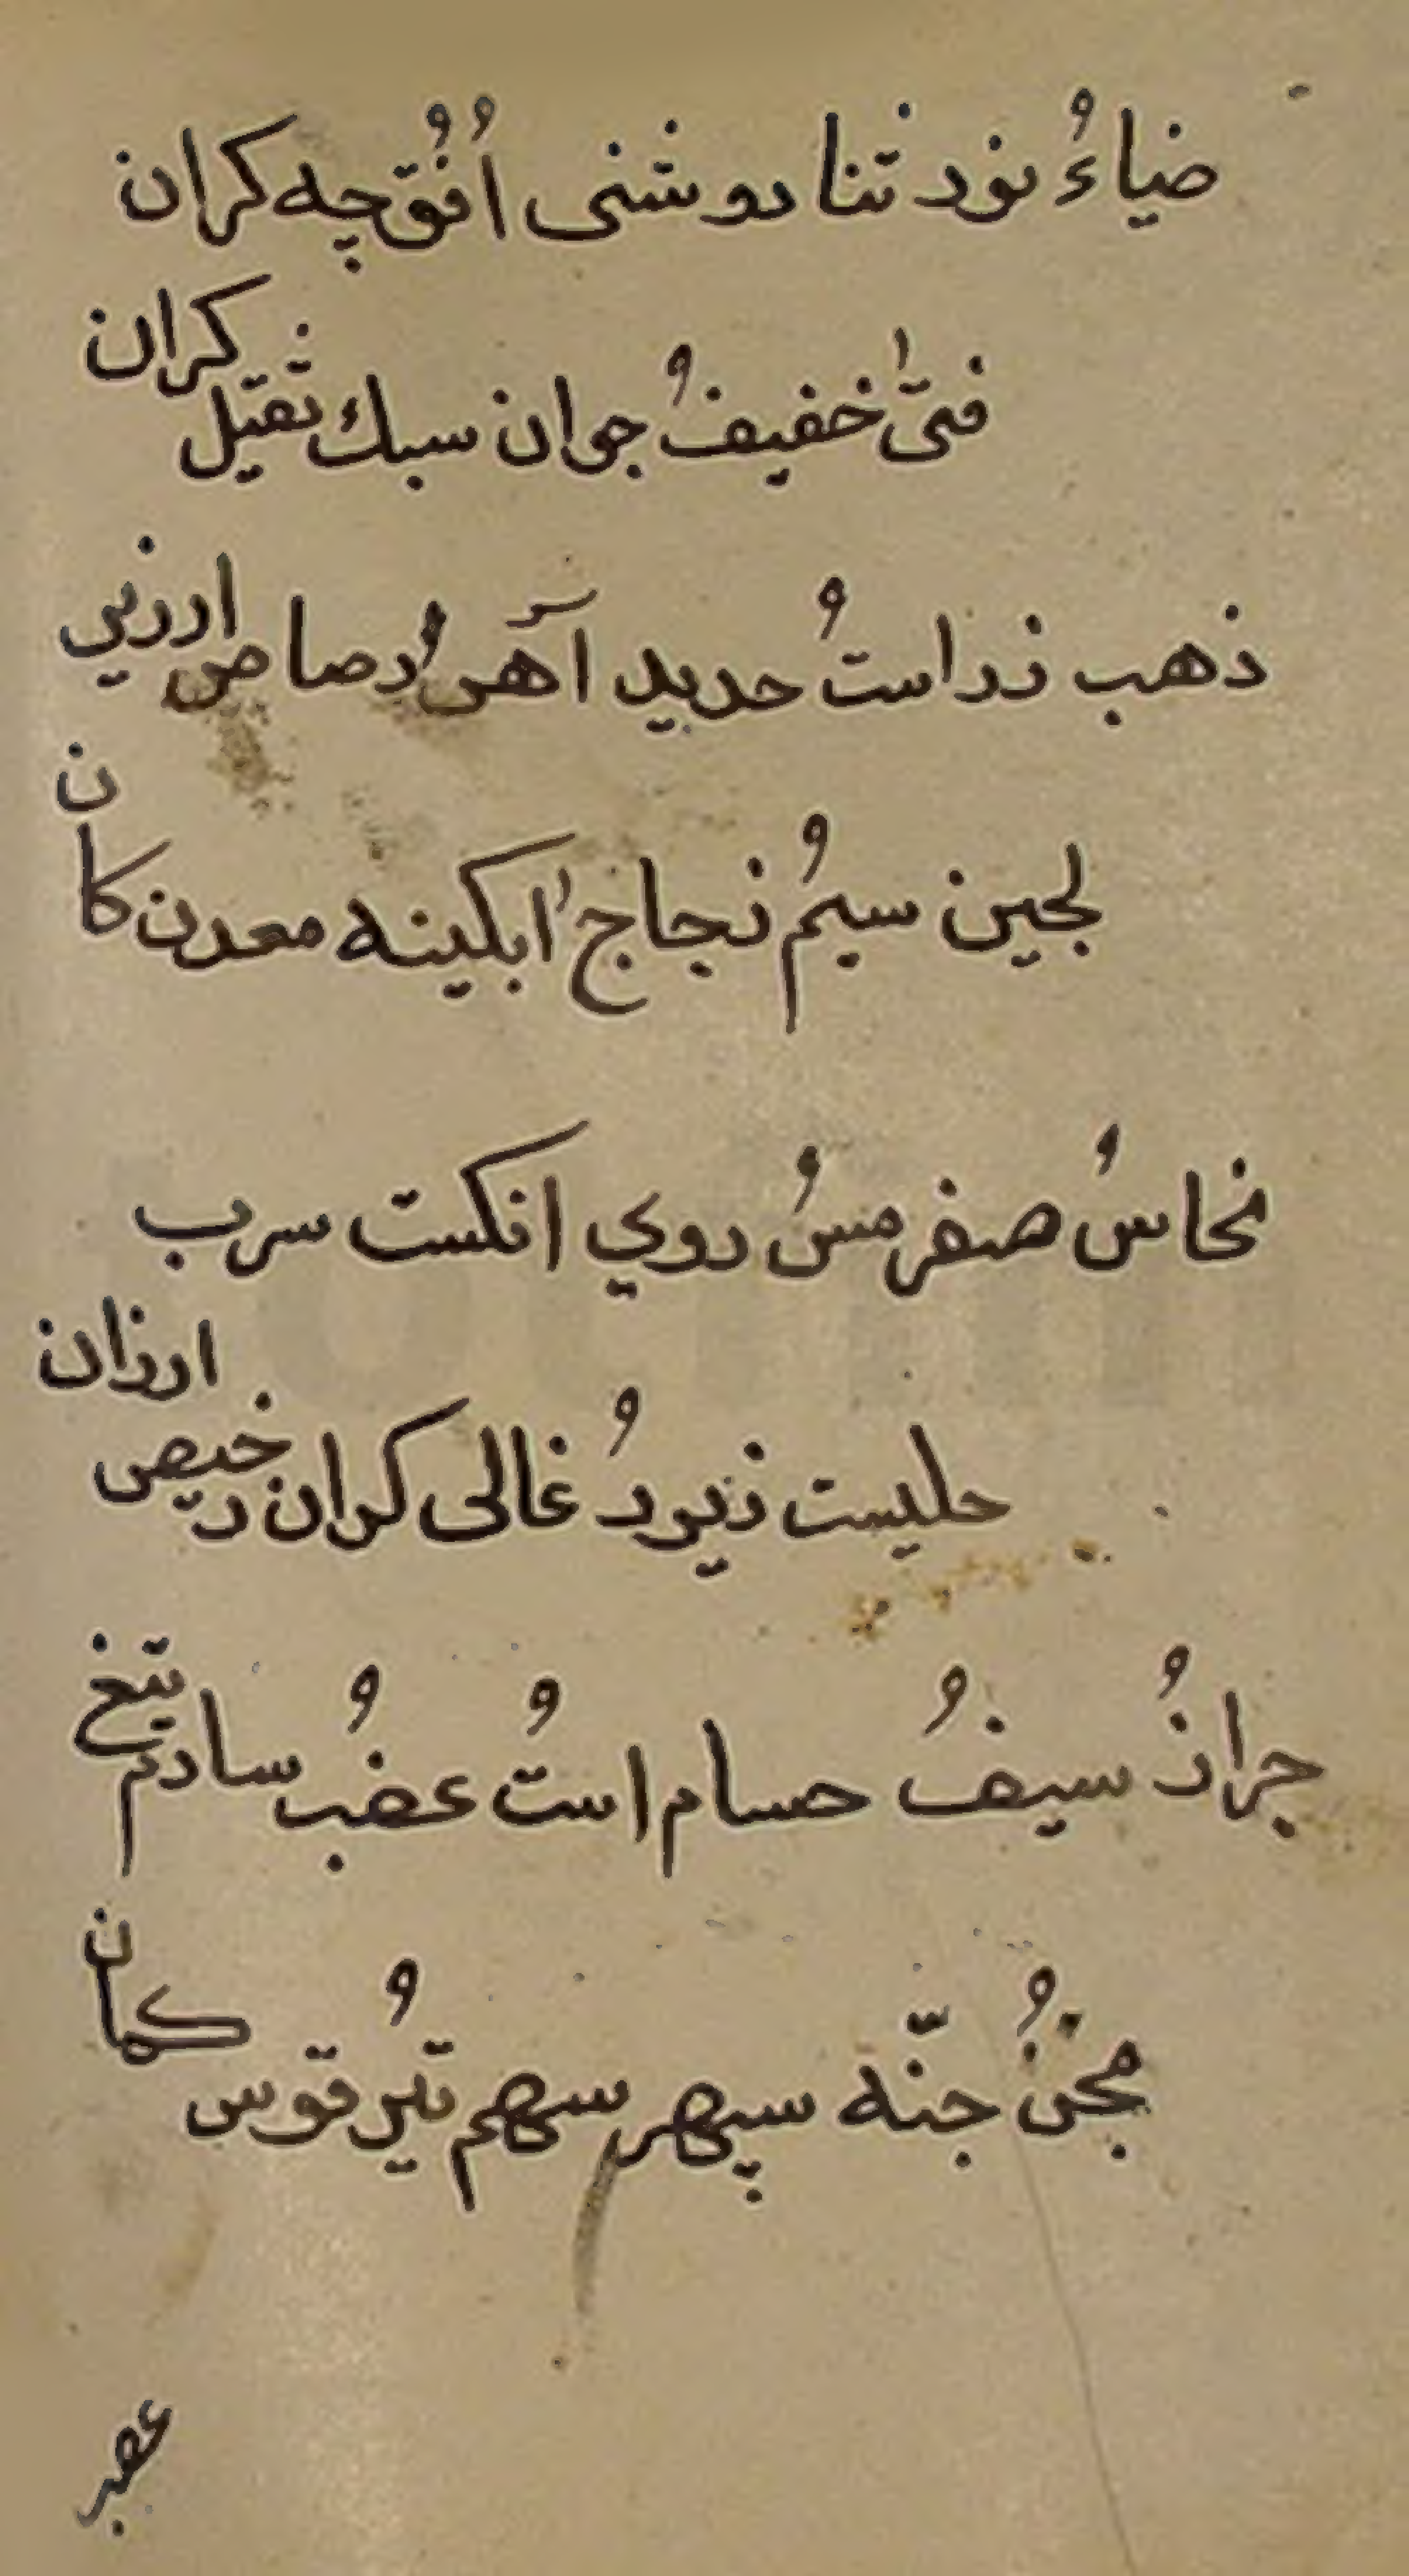 ضیاءُ نور ثنا روشنی اُفُق چه کران
فتیٰ خفیفُ جوان سبك ثقیل کران
ذهب زر استُ حدید آهن رصاص ارزیی
لجین سیمُ زجاج ابکینه معدن کان
نحاسُ صفر مسُ روي انکست سرب
حلیست زیورُ غالی کران رخیص ارزان
جرازُ سیفُ حسام استُ عضبُ سارم تیغ
مجنُ جنّه سپهر سهم تیرُ قوس کمان
عصیر